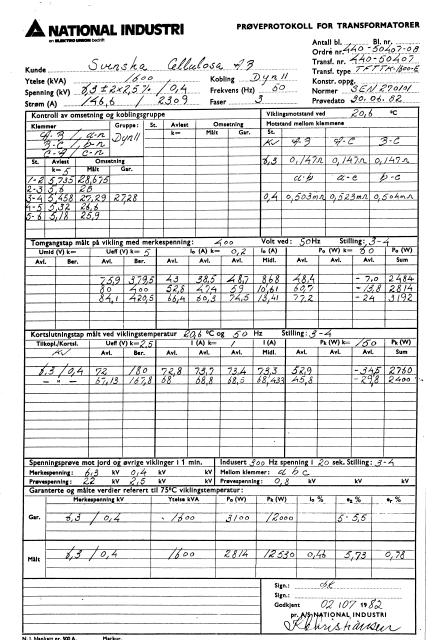 NATIONAL INDUSTRI
en ELEKTRO UNION bedrift
PRØVEPROTOKOLL FOR TRANSFORMATORER
Antall bl. Bl. nr.
Ordre nr. 440-50407-08
Kunde Svenska Cellulosa AB
Transf. nr. 440-50407
Ytelse (kVA) 1600 Kobling Dyn11
Transf. type TFTTK-1600-E
Konstr. oppg.
Spenning (kV) 6,3 ±2x2,5% / 0,4 Frekvens (Hz) 50
Normer SEN 270101
Strøm (A) 146,6 / 2309 Faser 3
Prøvedato 30.06.82
Kontroll av omsetning og koblingsgruppe
Vikingsmotstand ved 20,6 °C
Klemmer Gruppe: St. Avlest Omsetning St. Avlest Omsetning
Motstand mellom klemmene
A-B / a-n Dyn11 k= Målt Ber. k= Målt Ber.
St.
B-C / b-n
KV A-B A-C B-C
C-A / c-n
St. Avlest Omsetning
6,3 0,147Ω 0,147Ω 0,147Ω
k= 5 Målt Ber.
a-b a-c b-c
1-2 5,735 28,675
2-3 5,6 28
3-4 5,458 27,29 27,28
0,4 0,503mΩ 0,523mΩ 0,504mΩ
4-5 5,32 26,6
5-6 5,18 25,9
Tomgangstap målt på vikling med merkespenning: 400 Volt ved: 50 Hz Stilling: 3-4
Umid (V) k= Ueff (V) k= 5 I₀ (A) k= 0,2 I₀ (A) P₀ (W) k= 60 P₀ (W)
Avl. Ber. Avl. Ber. Avl. Avl. Avl. Midl. Avl. Avl. Avl. Sum
75,9 379,5 43 38,5 48,7 8,68 48,4 -7,0 2484
80 400 52,6 47,4 59 10,61 60,7 -13,8 2814
84,1 420,5 66,4 60,3 74,5 13,41 77,2 -24 3192
Kortslutningstap målt ved viklingstemperatur 20,6 °C og 50 Hz Stilling: 3-4
Tilkopl./Kortsl. Ueff (V) k= 2,5 I (A) k= 1 I (A) Pk (W) k= 150 Pk (W)
KV Avl. Ber. Avl. Avl. Avl. Midl. Avl. Avl. Avl. Sum
6,3 / 0,4 72 180 72,8 73,7 73,4 73,3 52,9 -34,5 2760
-"- 67,13 167,8 68 68,8 68,5 68,433 45,8 -29,8 2400
Spenningsprøve mot jord og øvrige viklinger i 1 min.
Indusert 300 Hz spenning i 20 sek. Stilling: 3-4
Merkespenning: 6,3 kV 0,4 kV kV
Mellom klemmer: a b c
Prøvespenning: 22 kV 2,5 kV kV
Prøvespenning: 0,8 kV kV kV
Garanterte og målte verdier referert til 75°C viklingstemperatur:
Merkespenning kV Ytelse kVA P₀ (W) Pk (W) I₀ % ez % er %
Gar. 6,3 / 0,4 1600 3100 12000 5-5,5
Målt 6,3 / 0,4 1600 2814 12530 0,46 5,73 0,78
Sign.:
Sign.:
Godkjent 02 / 07 1982
pr. A/S NATIONAL INDUSTRI